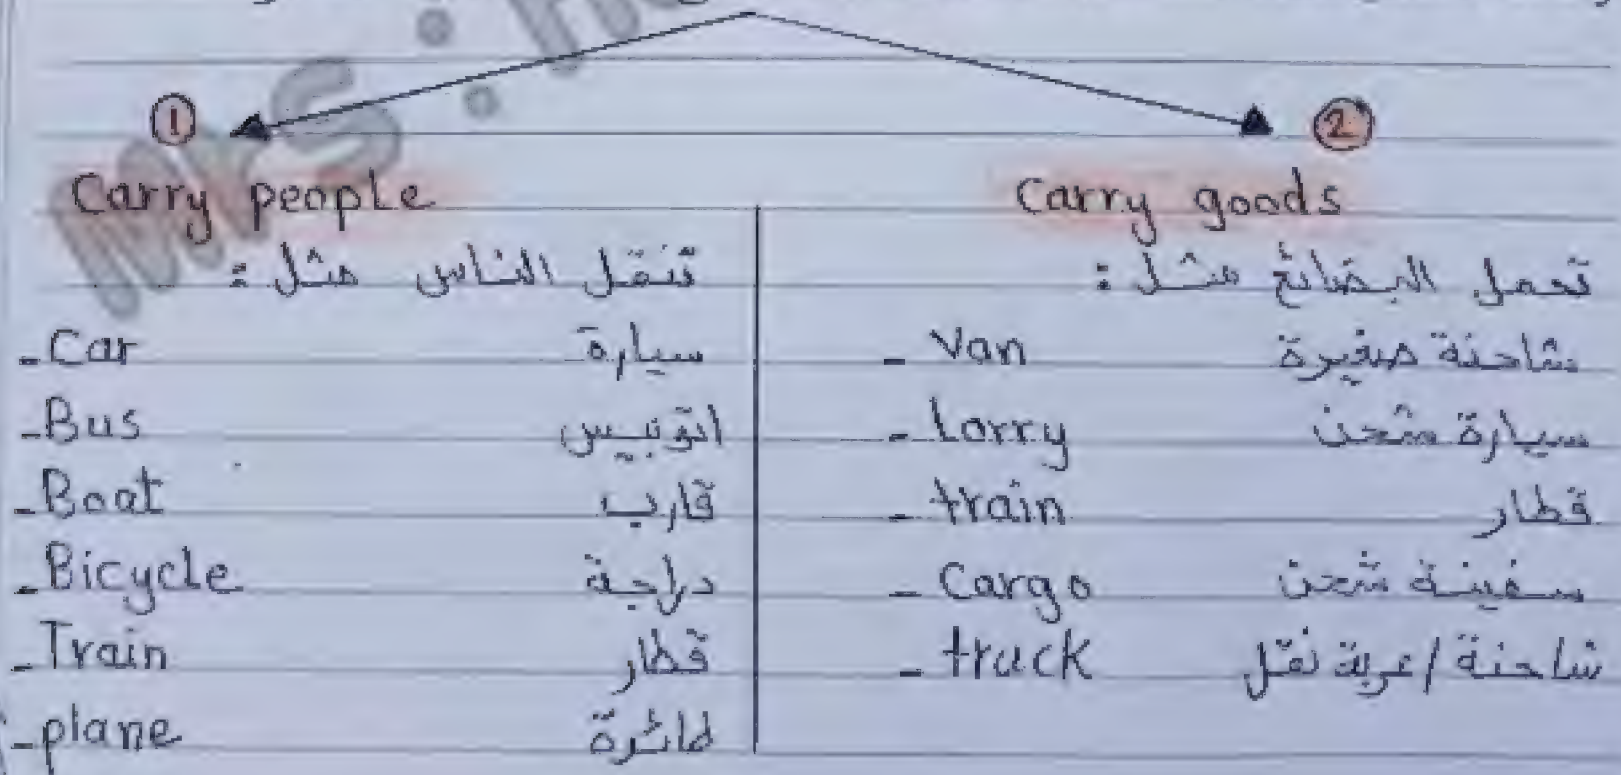 ①
Carry people
تنقل الناس مثل :
- Car سيارة
- Bus اتوبيس
- Boat قارب
- Bicycle دراجة
- Train قطار
- plane طائرة
②
Carry goods
تحمل البضائع مثل :
- Van شاحنة صغيرة
- lorry سيارة شحن
- train قطار
- Cargo سفينة شحن
- truck شاحنة / عربة نقل
Mrs :